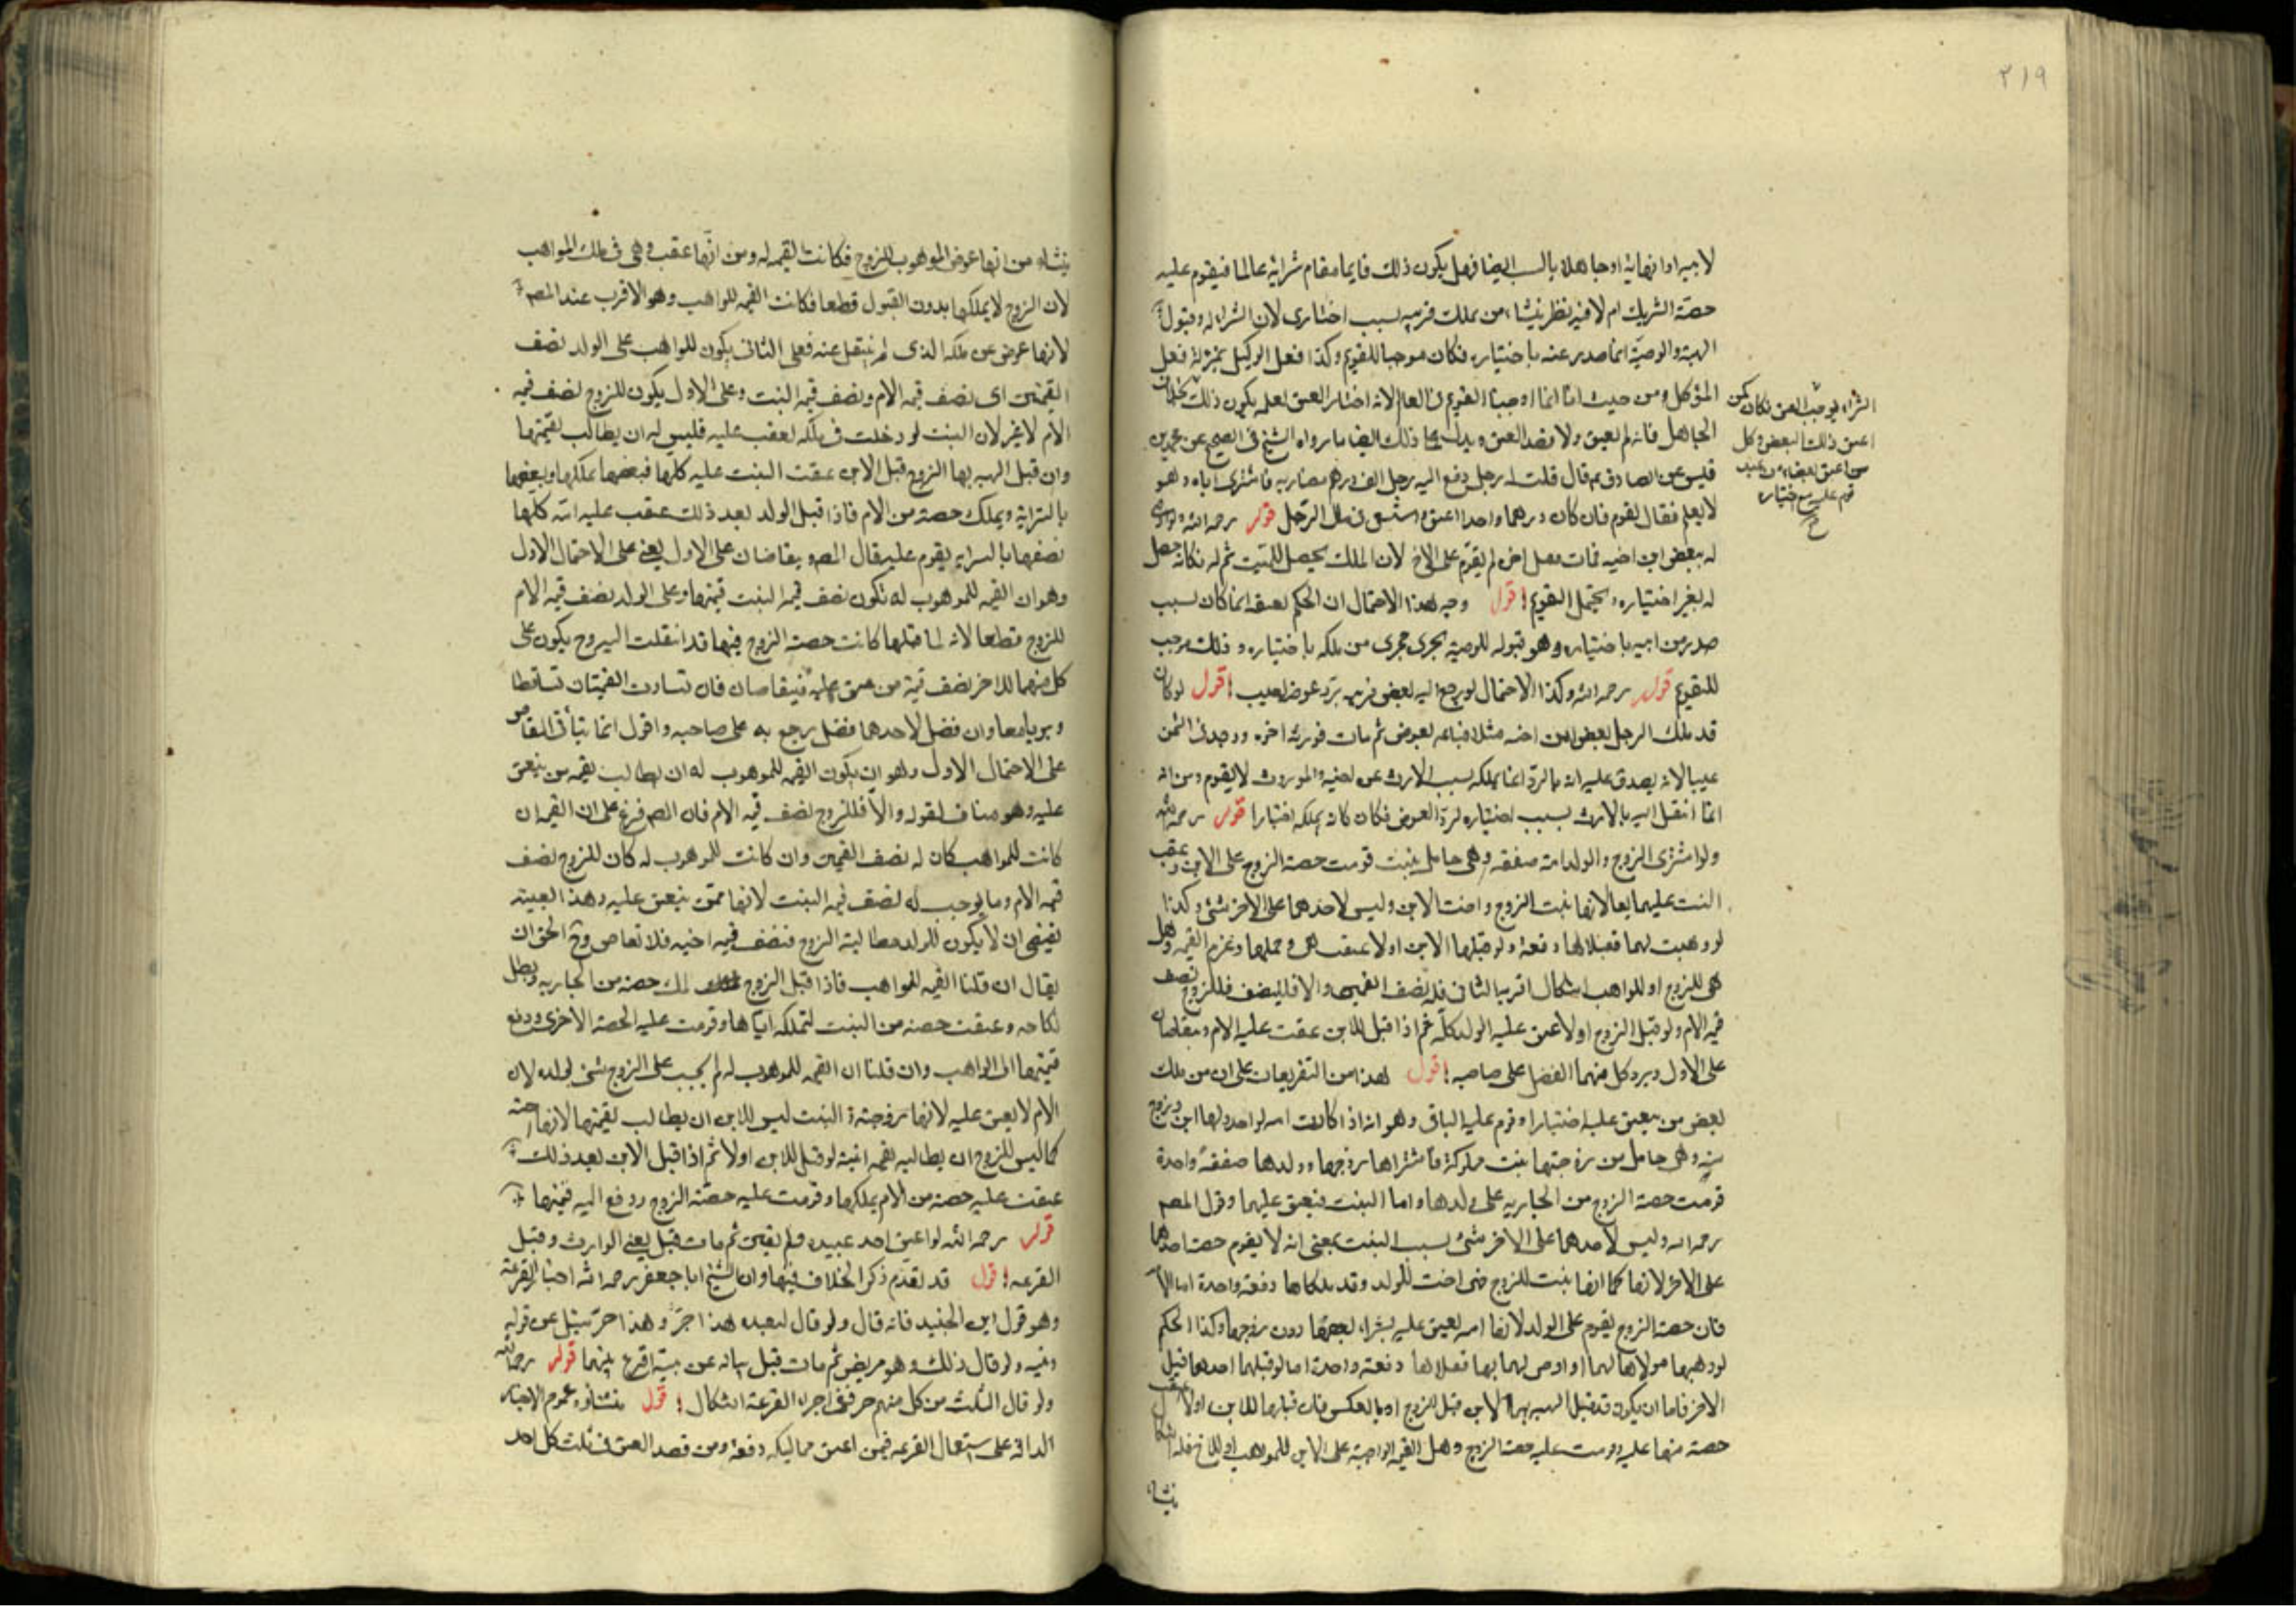 ٢١٩
لابيه او ابنها به او جاهلا بالسراية ايضا فهل يكون ذلك قايما مقام شرائه عالما فيقوم عليه
حصة الشريك ام لا فيه نظر ينشأ من تملك قريبه بسبب اختياري لان الشراء وقبول
الهبة والوصية انما صدر عنه باختياره فكان موجبا للتقويم وكذا فعل الوكيل بمنزلة فعل
الموكل ومن حيث انا انما اوجبنا التقويم في العالم لانه اختار العتق لعلمه بكون ذلك بخلاف
الجاهل فانه لم يعتق ولا قصد العتق ويدل على ذلك ايضا ما رواه الشيخ في الصحيح عن محمد بن
قيس عن الصادق ع قال قلت له رجل دفع اليه رجل الف درهم مضاربة فاشترى اباه وهو
لا يعلم فقال يقوم فان كان درهما واحدا اعتق واستسعى في مال الرجل قوله رحمه الله ولو اوصى
له ببعض ابن اخيه فمات فقبل اخوه لم يقوم على الاخ لان الملك يحصل للميت ثم له فكانه حصل
له بغير اختياره ويحتمل التقويم اقول وجه هذا الاحتمال ان الحكم بعتقه انما كان بسبب
صدر من ابيه باختياره وهو قبوله للوصية يجري مجرى من ملكه باختياره وذلك موجب
للتقويم قوله رحمه الله وكذا الاحتمال لو رجع اليه بعض قريبه برد عوضه لعيب اقول لو كان
قد ملك الرجل بعض ابن اخيه مثلا فباعه بعوض ثم مات فورثه اخوه ووجد في الثمن
عيبا لانه يصدق عليه انه بالرد انما يملكه بسبب الارث عن اخيه والموروث لا يقوم ومن انه
انما انتقل اليه بالارث بسبب اختياره لرد العوض فكان كانه يملكه اختيارا قوله رحمه الله
ولو اشترى الزوج والولد امة صفقة وهي حامل ببنت قومت حصة الزوج على الابن وعتقت
البنت عليهما معا لانها بنت الزوج واخت الابن وليس لاحدهما على الاخر شئ وكذا
لو وهبت لهما فقبلاها دفعة ولو قبلها الابن اولا عتقت هي وحملها وغرم القيمة وهل
هي للزوج او للواهب اشكال اقربه الثاني فله نصف القيمتين والا فللزوج نصف
قيمة الام ولو قبل الزوج اولا عتق عليه الولد كله ثم اذا قبل الابن عتقت عليه الام ويتقاصان
على الاول ويرد كل منهما الفضل على صاحبه اقول هذا من التفريعات على ان من ملك
بعض من يعتق عليه اختيارا وقوم عليه الباقي وهو انه اذا كانت امة لواحد ولها ابن وزوج
منه وهي حامل من زوجها ببنت مملوكة فاشتراها زوجها وولدها صفقة واحدة
قومت حصة الزوج من الجارية على ولدها واما البنت فيعتق عليهما وقول المصنف
رحمه الله وليس لاحدهما على الاخر شئ بسبب البنت بمعنى انه لا يقوم حصة احدهما
على الاخر لانها كما انها بنت للزوج فهي اخت للولد وقد ملكاها دفعة واحدة اما الام
فان حصة الزوج يقوم على الولد لانها امه يعتق عليه بشراء بعضها دون زوجها وكذا الحكم
لو وهبها مولاها لهما او اوصى لهما بها فقبلاها دفعة واحدة اما لو قبلها احدهما قبل
الاخر فاما ان يكون قد قبل الهبة بها الابن قبل الزوج او بالعكس فان قبلها الابن اولا عتقت
حصته منها عليه وقومت عليه حصة الزوج وهل القيمة الواجبة على الابن للموهب او للاخ فله اشكال
ينشأ
الشراء يوجب العتق فكان كمن
اعتق ذلك البعض وكل
من اعتق بعضا من عبد
قوم عليه مع اختياره
ينشأ من انها عوض الموهوب للزوج فكانت القيمة له ومن انها عقب وهي في ملك الواهب
لان الزوج لا يملكها بدون القبول قطعا فكانت القيمة للواهب وهو الاقرب عند المصنف
لانها عوض عن ملكه الذي لم ينتقل عنه فعلى الثاني يكون للواهب على الولد نصف
القيمتين اي نصف قيمة الام ونصف قيمة البنت وعلى الاول يكون للزوج نصف قيمة
الام لا غير لان البنت لو دخلت في ملكه لعتقت عليه فليس له ان يطالب بقيمتها
وان قبل الهبة بها الزوج قبل الابن عتقت البنت عليه كلها فبعضها بملكها وبعضها
بالسراية ويملك حصته من الام فاذا قبل الولد بعد ذلك عتقت عليه امه كلها
نصفها بالسراية يقوم عليه قال المصنف ويتقاصان على الاول يعني على الاحتمال الاول
وهو ان القيمة للموهوب له تكون نصف قيمة البنت قيمتها وعلى الولد نصف قيمة الام
للزوج قطعا لانه لما قبلها كانت حصة الزوج فيها قد انتقلت اليه وح يكون على
كل منهما للاخر نصف قيمة من عتق عليه فيتقاصان فان تساوت القيمتان تساقطا
وبريا معا وان فضل لاحدهما فضل يرجع به على صاحبه واقول انما يتأتى التقاص
على الاحتمال الاول وهو ان يكون القيمة للموهوب له ان يطالب بقيمة من ينعتق
عليه وهو مناف لقوله والا فللزوج نصف قيمة الام فان المصنف فرع على ان القيمة ان
كانت للواهب كان له نصف القيمتين وان كانت للموهوب له كان للزوج نصف
قيمة الام وما يوجب له نصف قيمة البنت لانها ممن ينعتق عليه وهذا بعينه
يقتضي ان لا يكون للولد مطالبة الزوج فنصف قيمة اخته فلا تقاص وح الحق ان
يقال ان قلنا القيمة للواهب فاذا قبل الزوج ملك حصته من الجارية وبطل
نكاحه وعتقت حصته من البنت لتملكه اياها وقومت عليه الحصة الاخرى ودفع
قيمتها الى الواهب وان قلنا ان القيمة للموهوب له لم يجب على الزوج شئ لولده لان
الام لا يعتق عليه لانها زوجته والبنت ليس للابن ان يطالب بقيمتها لانها اخته
كما ليس للزوج ان يطالبه بقيمة ابنته لو قبل الابن اولا ثم اذا قبل الابن بعد ذلك
عتقت عليه حصته من الام بملكها وقومت عليه حصة الزوج ودفع اليه قيمتها
قوله رحمه الله لو اعتق احد عبيده ولم يعين ثم مات قيل يعين الوارث وقيل
القرعة اقول قد تقدم ذكر الخلاف فيها وان الشيخ ابا جعفر رحمه الله اختار القرعة
وهو قول ابن الجنيد فانه قال ولو قال لعبده هذا حر وهذا حر سئل عن قوله
ونيته ولو قال ذلك وهو مريض ثم مات قبل بيانه عن نيته اقرع بينهما قوله رحمه الله
ولو قال الثلث من كل منهم حر ففي اجراء القرعة اشكال اقول منشأه عموم الاخبار
الدالة على استعمال القرعة فيمن اعتق مماليكه دفعة ومن قصد العتق في ثلث كل احد